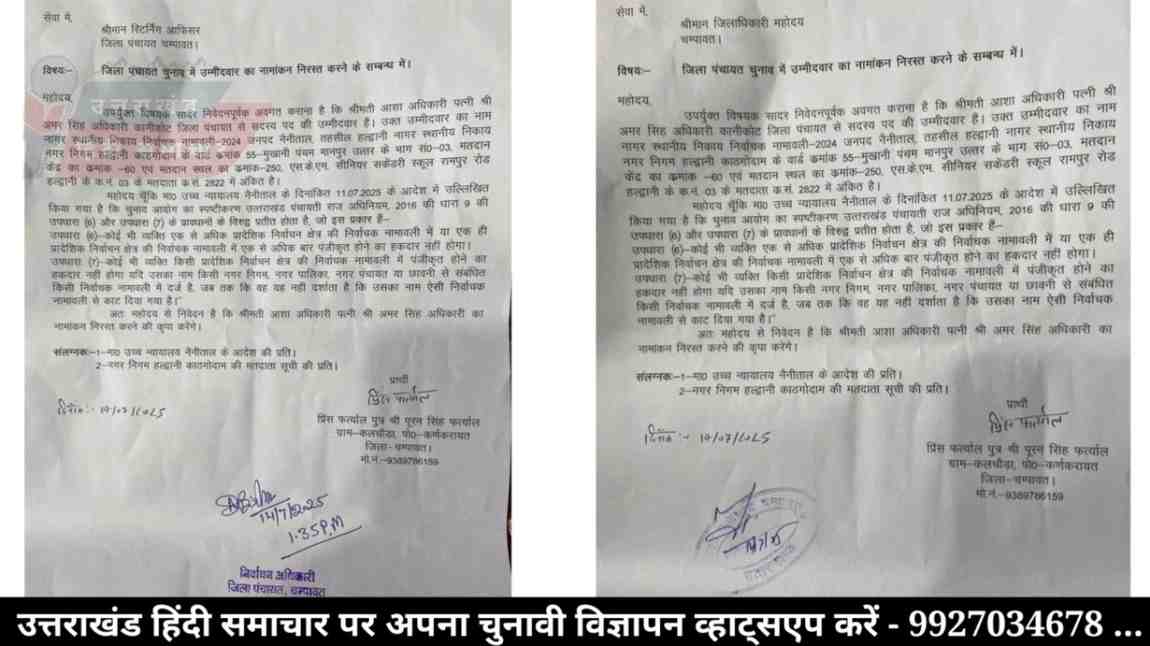 सेवा में,
श्रीमान रिटर्निंग आफिसर
जिला पंचायत चम्पावत।
विषयः– जिला पंचायत चुनाव में उम्मीदवार का नामांकन निरस्त करने के सम्बन्ध में।
महोदय,
उत्तराखण्ड
उपर्युक्त विषयक सादर निवेदनपूर्वक अवगत कराना है कि श्रीमती आशा अधिकारी पत्नी श्री
अमर सिंह अधिकारी कानीकोट जिला पंचायत से सदस्य पद की उम्मीदवार है। उक्त उम्मीदवार का नाम
नागर स्थानीय निकाय निर्वाचक नामावली–2024 जनपद नैनीताल, तहसील हल्द्वानी नागर स्थानीय निकाय
नगर निगम हल्द्वानी काठगोदाम के वार्ड कमांक 55–मुखानी पंचम मानपुर उत्तर के भाग सं0–03, मतदान
केंद्र का कमांक –60 एवं मतदान स्थल का कमांक–250, एस.के.एम. सीनियर सकेंडरी स्कूल रामपुर रोड
हल्द्वानी के क.नं. 03 के मतदाता क.सं. 2822 में अंकित है।
महोदय चूंकि मा0 उच्च न्यायालय नैनीताल के दिनांकित 11.07.2025 के आदेश में उल्लिखित
किया गया है कि चुनाव आयोग का स्पष्टीकरण उत्तराखण्ड पंचायती राज अधिनियम, 2016 की धारा 9 की
उपधारा (6) और उपधारा (7) के प्रावधानों के विरुद्व प्रतीत होता है, जो इस प्रकार है–
उपधारा (6)–कोई भी व्यक्ति एक से अधिक प्रादेशिक निर्वाचन क्षेत्र की निर्वाचक नामावली में या एक ही
प्रादेशिक निर्वाचन क्षेत्र की निर्वाचक नामावली में एक से अधिक बार पंजीकृत होने का हकदार नहीं होगा।
उपधारा (7)–कोई भी व्यक्ति किसी प्रादेशिक निर्वाचन क्षेत्र की निर्वाचक नामावली में पंजीकृत होने का
हकदार नही होगा यदि उसका नाम किसी नगर निगम, नगर पालिका, नगर पंचायत या छावनी से संबंधित
किसी निर्वाचक नामावली में दर्ज है, जब तक कि वह यह नही दर्शाता है कि उसका नाम ऐसी निर्वाचक
नामावली से काट दिया गया है।"
अतः महोदय से निवेदन है कि श्रीमती आशा अधिकारी पत्नी श्री अमर सिंह अधिकारी का
नामांकन निरस्त करने की कृपा करेंगे।
संलग्नकः–1–मा0 उच्च न्यायालय नैनीताल के आदेश की प्रति।
2–नगर निगम हल्द्वानी काठगोदाम की मतदाता सूची की प्रति।
प्रार्थी
दिनांक :- 14/07/2025
प्रिंस फर्त्याल
प्रिंस फर्त्याल पुत्र श्री पूरन सिंह फर्त्याल
ग्राम–कलचौड़ा, पो0–कर्णकरायत
जिला–चम्पावत।
मो.नं.–9389786159
14/7/2025
1.35 P.M
निर्वाचन अधिकारी
जिला पंचायत, चम्पावत
सेवा में,
श्रीमान जिलाधिकारी महोदय
चम्पावत।
विषयः– जिला पंचायत चुनाव में उम्मीदवार का नामांकन निरस्त करने के सम्बन्ध में।
महोदय,
उपर्युक्त विषयक सादर निवेदनपूर्वक अवगत कराना है कि श्रीमती आशा अधिकारी पत्नी श्री
अमर सिंह अधिकारी कानीकोट जिला पंचायत से सदस्य पद की उम्मीदवार है। उक्त उम्मीदवार का नाम
नागर स्थानीय निकाय निर्वाचक नामावली–2024 जनपद नैनीताल, तहसील हल्द्वानी नागर स्थानीय निकाय
नगर निगम हल्द्वानी काठगोदाम के वार्ड कमांक 55–मुखानी पंचम मानपुर उत्तर के भाग सं0–03, मतदान
केंद्र का कमांक –60 एवं मतदान स्थल का कमांक–250, एस.के.एम. सीनियर सकेंडरी स्कूल रामपुर रोड
हल्द्वानी के क.नं. 03 के मतदाता क.सं. 2822 में अंकित है।
महोदय चूंकि मा0 उच्च न्यायालय नैनीताल के दिनांकित 11.07.2025 के आदेश में उल्लिखित
किया गया है कि चुनाव आयोग का स्पष्टीकरण उत्तराखण्ड पंचायती राज अधिनियम, 2016 की धारा 9 की
उपधारा (6) और उपधारा (7) के प्रावधानों के विरुद्व प्रतीत होता है, जो इस प्रकार है–
उपधारा (6)–कोई भी व्यक्ति एक से अधिक प्रादेशिक निर्वाचन क्षेत्र की निर्वाचक नामावली में या एक ही
प्रादेशिक निर्वाचन क्षेत्र की निर्वाचक नामावली में एक से अधिक बार पंजीकृत होने का हकदार नहीं होगा।
उपधारा (7)–कोई भी व्यक्ति किसी प्रादेशिक निर्वाचन क्षेत्र की निर्वाचक नामावली में पंजीकृत होने का
हकदार नही होगा यदि उसका नाम किसी नगर निगम, नगर पालिका, नगर पंचायत या छावनी से संबंधित
किसी निर्वाचक नामावली में दर्ज है, जब तक कि वह यह नही दर्शाता है कि उसका नाम ऐसी निर्वाचक
नामावली से काट दिया गया है।"
अतः महोदय से निवेदन है कि श्रीमती आशा अधिकारी पत्नी श्री अमर सिंह अधिकारी का
नामांकन निरस्त करने की कृपा करेंगे।
संलग्नकः–1–मा0 उच्च न्यायालय नैनीताल के आदेश की प्रति।
2–नगर निगम हल्द्वानी काठगोदाम की मतदाता सूची की प्रति।
प्रार्थी
दिनांक :- 14/07/2025
प्रिंस फर्त्याल
प्रिंस फर्त्याल पुत्र श्री पूरन सिंह फर्त्याल
ग्राम–कलचौड़ा, पो0–कर्णकरायत
जिला–चम्पावत।
मो.नं.–9389786159
उत्तराखंड हिंदी समाचार पर अपना चुनावी विज्ञापन व्हाट्सएप करें - 9927034678 ...